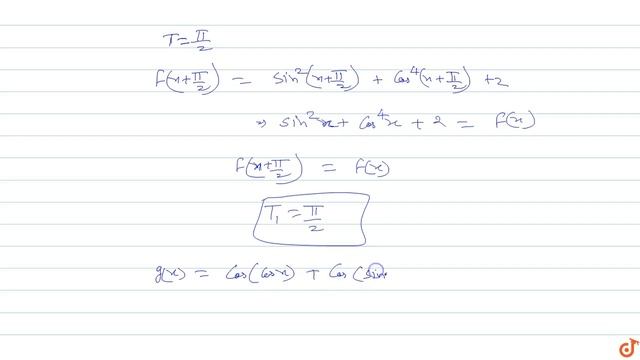 T = π/2
f(x+π/2) = sin²(x+π/2) + cos⁴(x+π/2) + 2
⇒ sin²x + cos⁴x + 2 = f(x)
f(x+π/2) = f(x)
T₁ = π/2
g(x) = cos(cosx) + cos(sinx